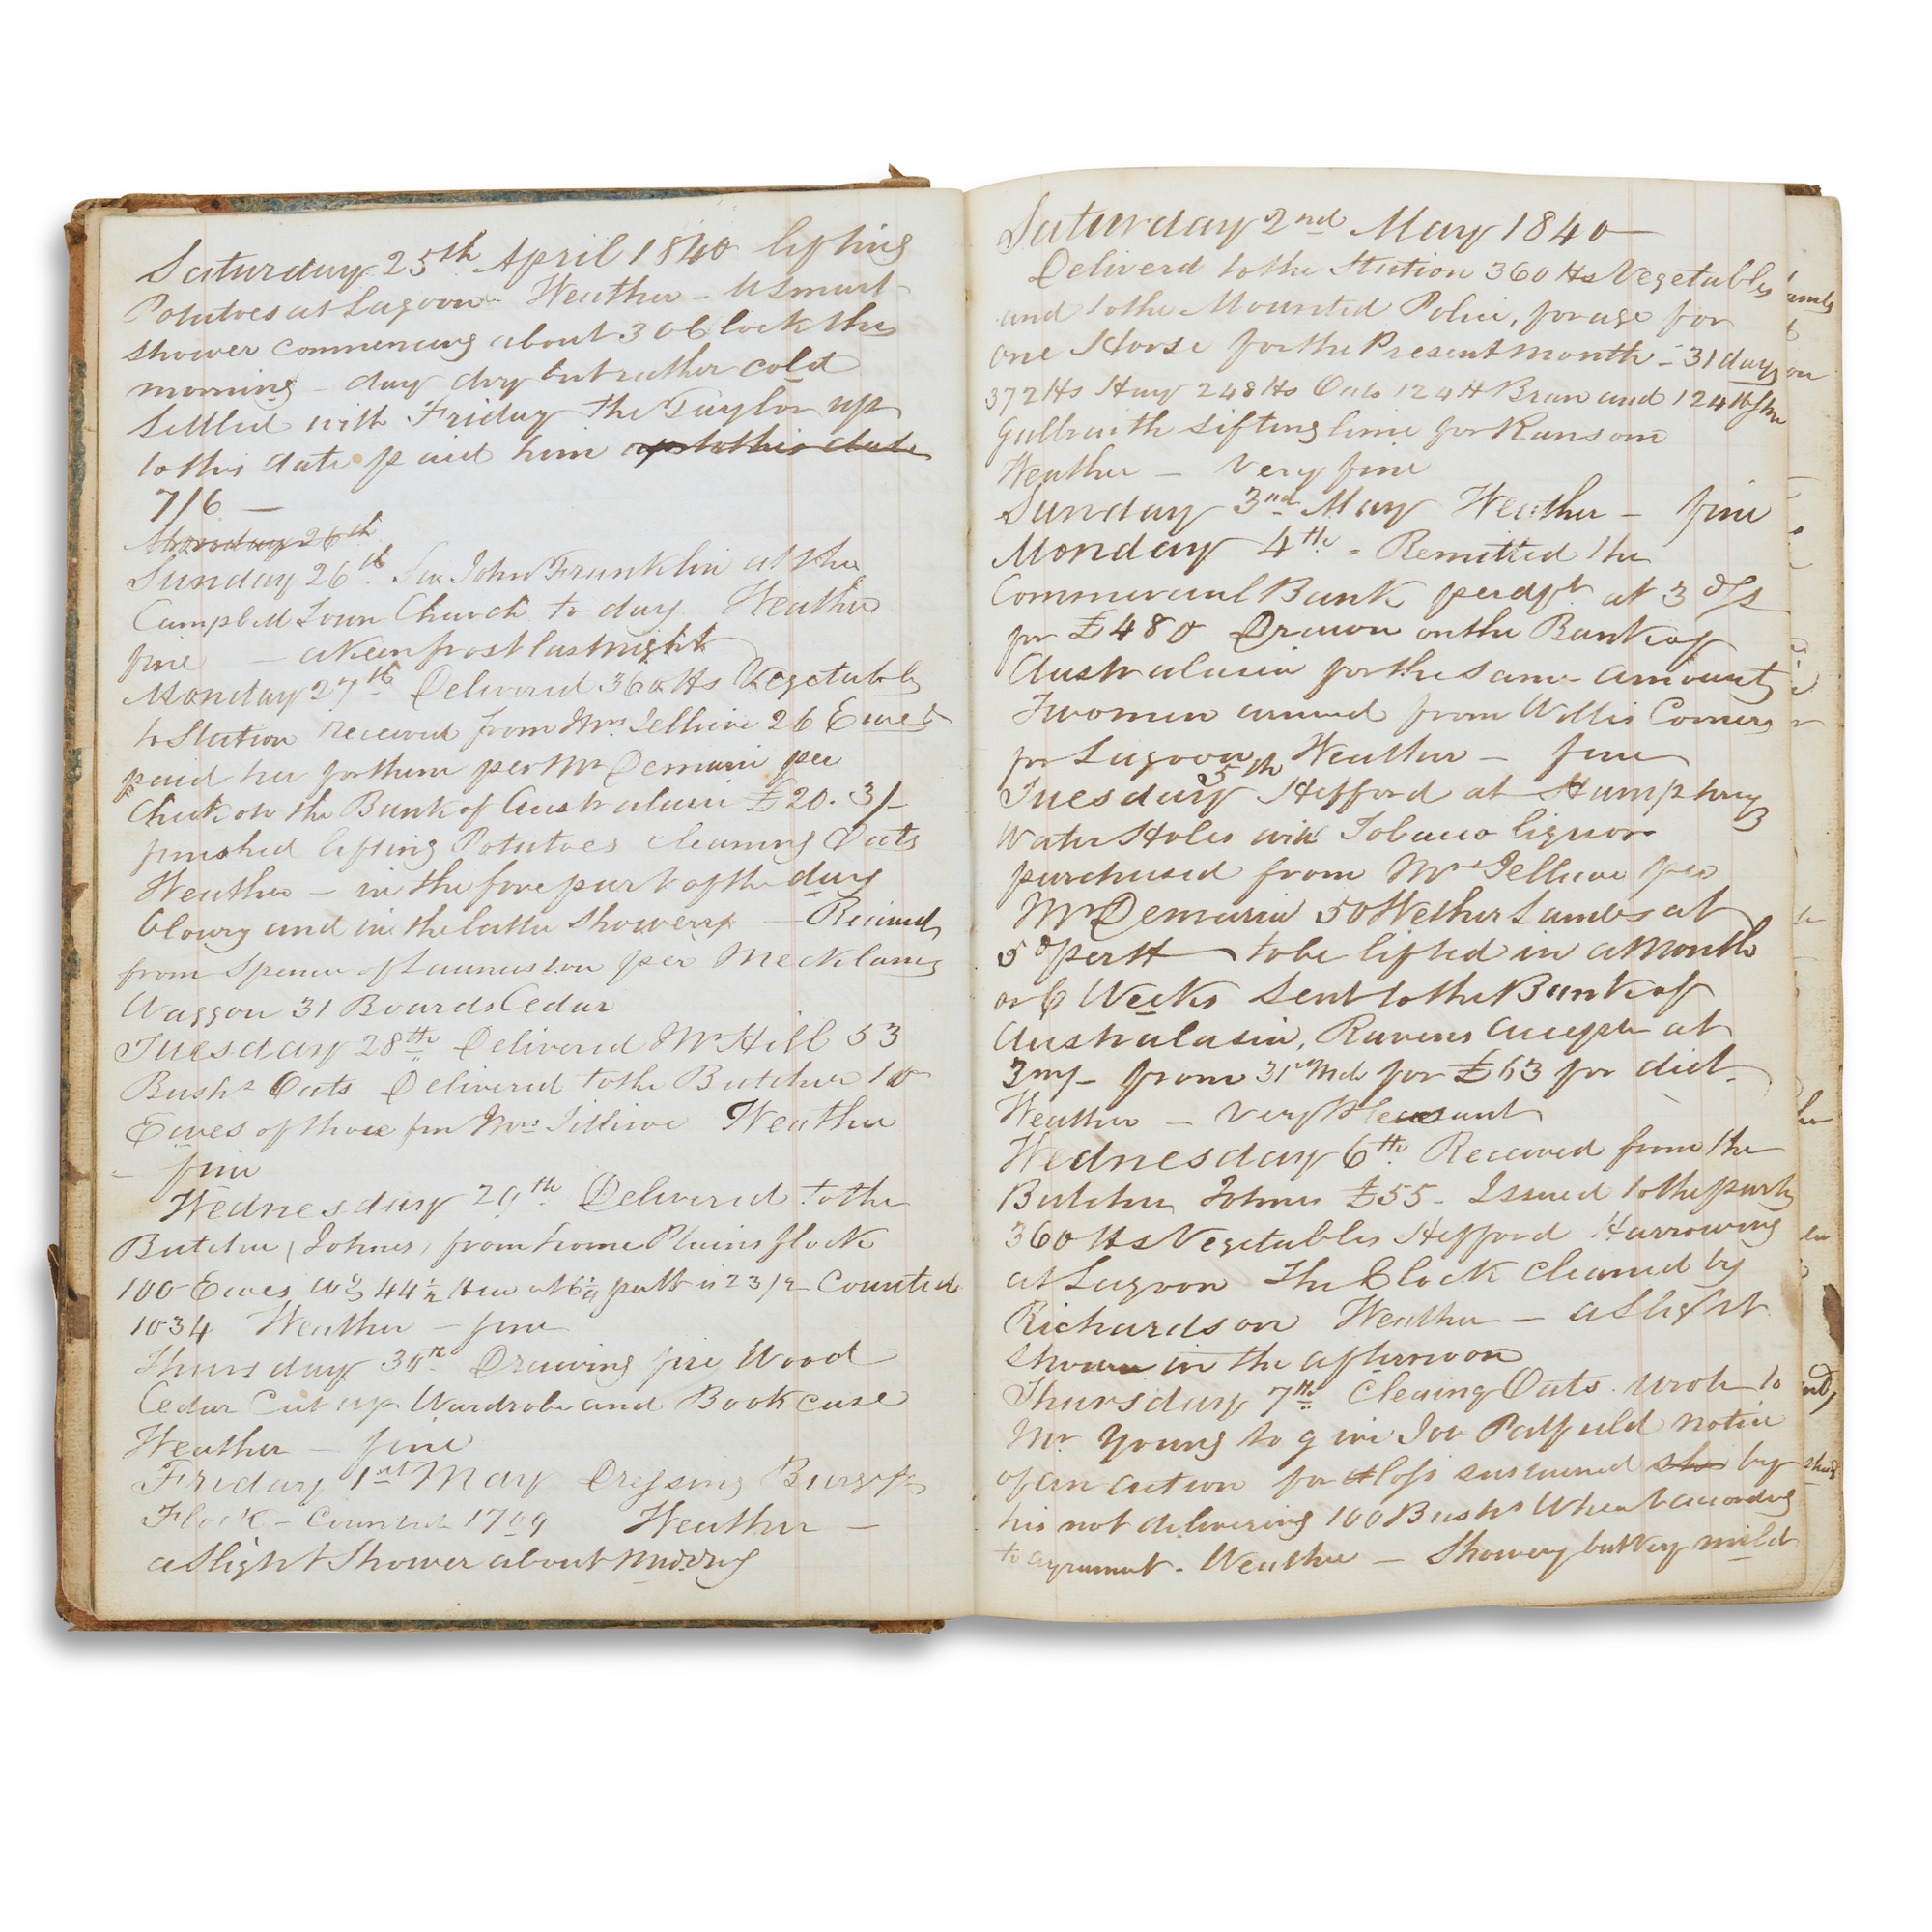 Saturday 25th April 1840 lifting
Potatoes at Lagoon Weather – a smart
shower commencing about 3 oClock this
morning – day dry but rather cold
Settled with Friday the Taylor up
to this date paid him up to this date
7/6 —
Monday 26th
Sunday 26th Sir John Franklin at the
Campbell Town Church to day Weather
fine – a keen frost last night
Monday 27th Delivered 360 lbs Vegetables
to Station received from Mrs Jellicoe 26 Ewes
paid her for them per Mr Demain per
Check on the Bank of Australasia £20. 3/–
finished lifting Potatoes cleaning Oats
Weather – in the fore part of the day
blowy and in the latter showery – Received
from Spence of Launceston per
Waggon 31 Boards Cedar
Tuesday 28th Delivered Mr Hill 53
Bushs Oats Delivered to the Butcher 10
Ewes of those from Mrs Jellicoe Weather
– fine
Wednesday 29th Delivered to the
Butcher, Johnes, from home Plains flock
100 Ewes 44½ at 23/2 Counted
1034 Weather – fine
Thursday 30th Drawing fire Wood
Cedar Cut up Wardrobe and Book case
Weather – fine
Friday 1st May Dressing
Flock – Counted 1709 Weather –
a Slight Shower about midday
Saturday 2nd May 1840 —
Deliverd to the Station 360 lbs Vegetables
and to the Mounted Police, forage for
one Horse for the Present month – 31 days
372 lbs Hay 248 lbs Oats 124 lb Bran and 124 lb Straw
Galbraith sifting lime for Ransom
Weather – Very fine
Sunday 3nd May Weather – fine
Monday 4th – Remitted the
Commercial Bank per dft at 3 d/s
for £480 Drawn on the Bank of
Australasia for the same amount
Two men arrived from Willis Corners
for Lagoon Weather – fine
Tuesday 5th Hefford at Humphrey
Water Holes with Tobacco liquor
purchased from Mrs Jellicoe per
Mr Demain 50 Wether Lambs at
5/ per Hd – to be lifted in a Month
or 6 Weeks Sent to the Bank of
Australasia, Ravens accept at
3 m/– from 31st Mch for £63 for dict
Weather – Very Pleasant
Wednesday 6th Received from the
Butcher Johnes £55 – Issued to the party
360 lbs Vegetables Hefford Harrowing
at Lagoon The Clock cleaned by
Richardson Weather – a Slight
shower in the afternoon
Thursday 7th Cleaing Oats. wrote to
Mr Young to give Joo Padfield notice
of an action for loss sustained by
his not delivering 100 Bushs Wheat according
to agreement. Weather – Showery but very mild